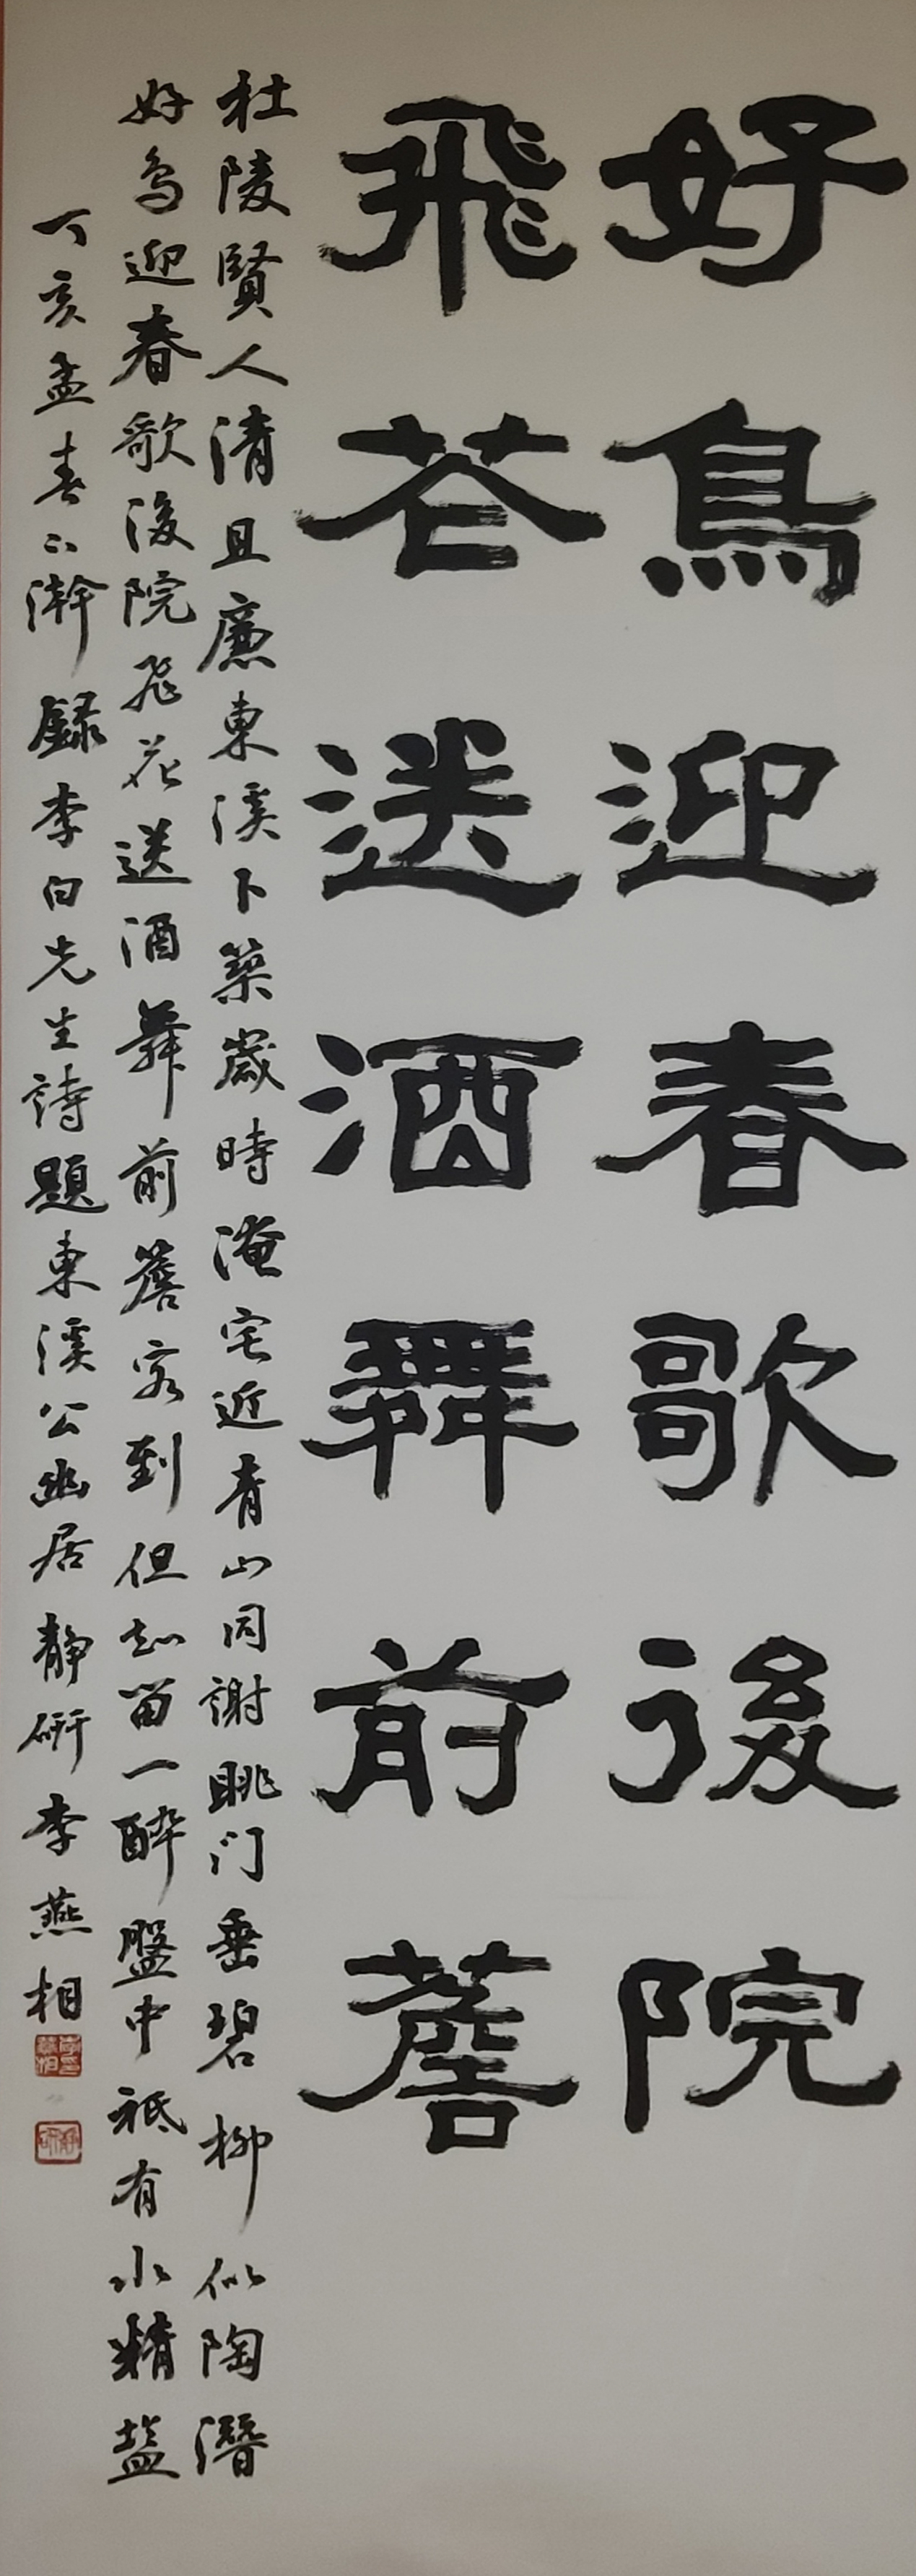 好鳥迎春歌後院
飛花送酒舞前簷
杜陵賢人清且廉東溪卜築歲時淹宅近青山同謝眺门垂碧柳似陶潛
好鳥迎春歌後院飛花送酒舞前簷客到但知留一醉盤中祗有水精盐
丁亥孟春下澣錄李白先生詩題東溪公幽居靜研李燕相
李印燕相
靜研